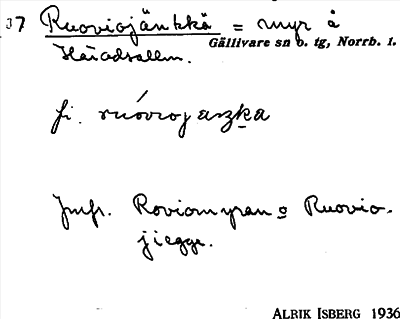 37 Ruoviojänkkä = myr å
Häradsallm.
Gällivare sn o. tg, Norrb. l.
fi. rúoviojaŋka
Jmfr. Roviomyran o Ruovio-
jiegge.
ALRIK ISBERG 1936